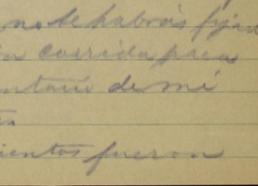 no te habrás fijad
ón corrida para
ntarii de mí
ientos fueron